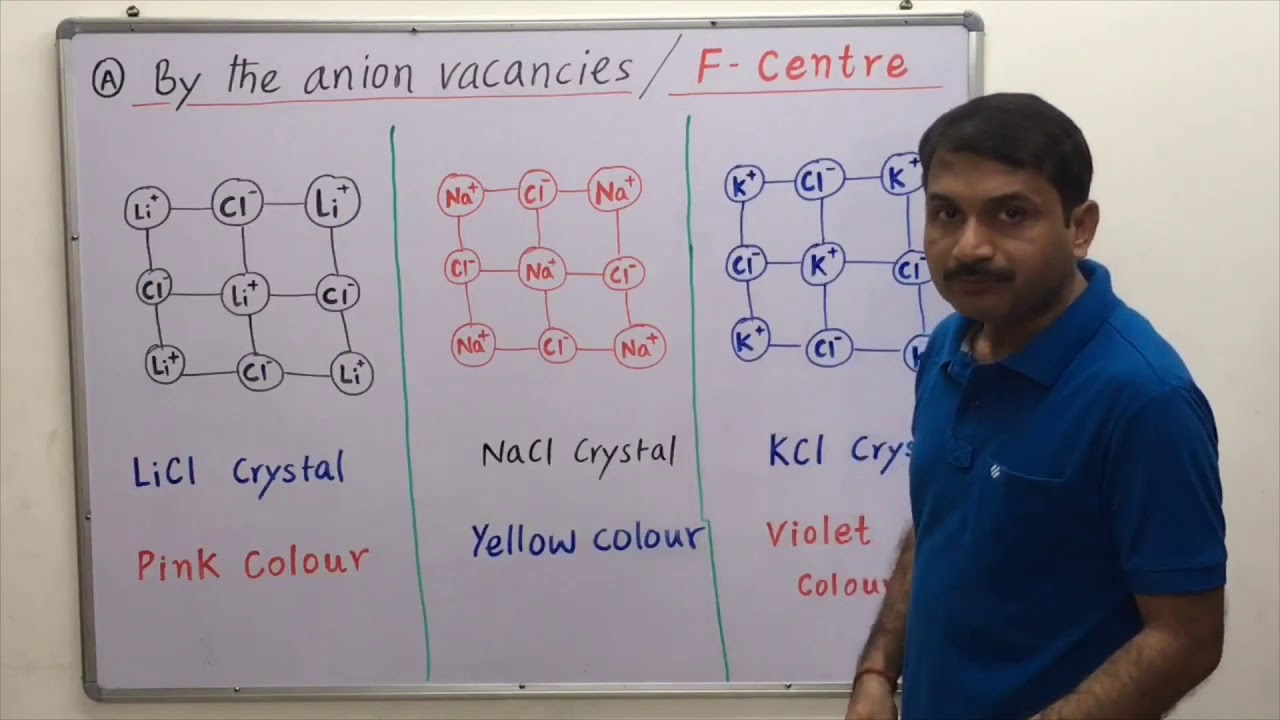 Ⓐ By the anion vacancies / F- Centre
Li⁺ Cl⁻ Li⁺
Cl⁻ Li⁺ Cl⁻
Li⁺ Cl⁻ Li⁺
LiCl Crystal
Pink Colour
Na⁺ Cl⁻ Na⁺
Cl⁻ Na⁺ Cl⁻
Na⁺ Cl⁻ Na⁺
NaCl Crystal
Yellow colour
K⁺ Cl⁻ K⁺
Cl⁻ K⁺ Cl⁻
K⁺ Cl⁻ K
KCl Crys
Violet
Colou